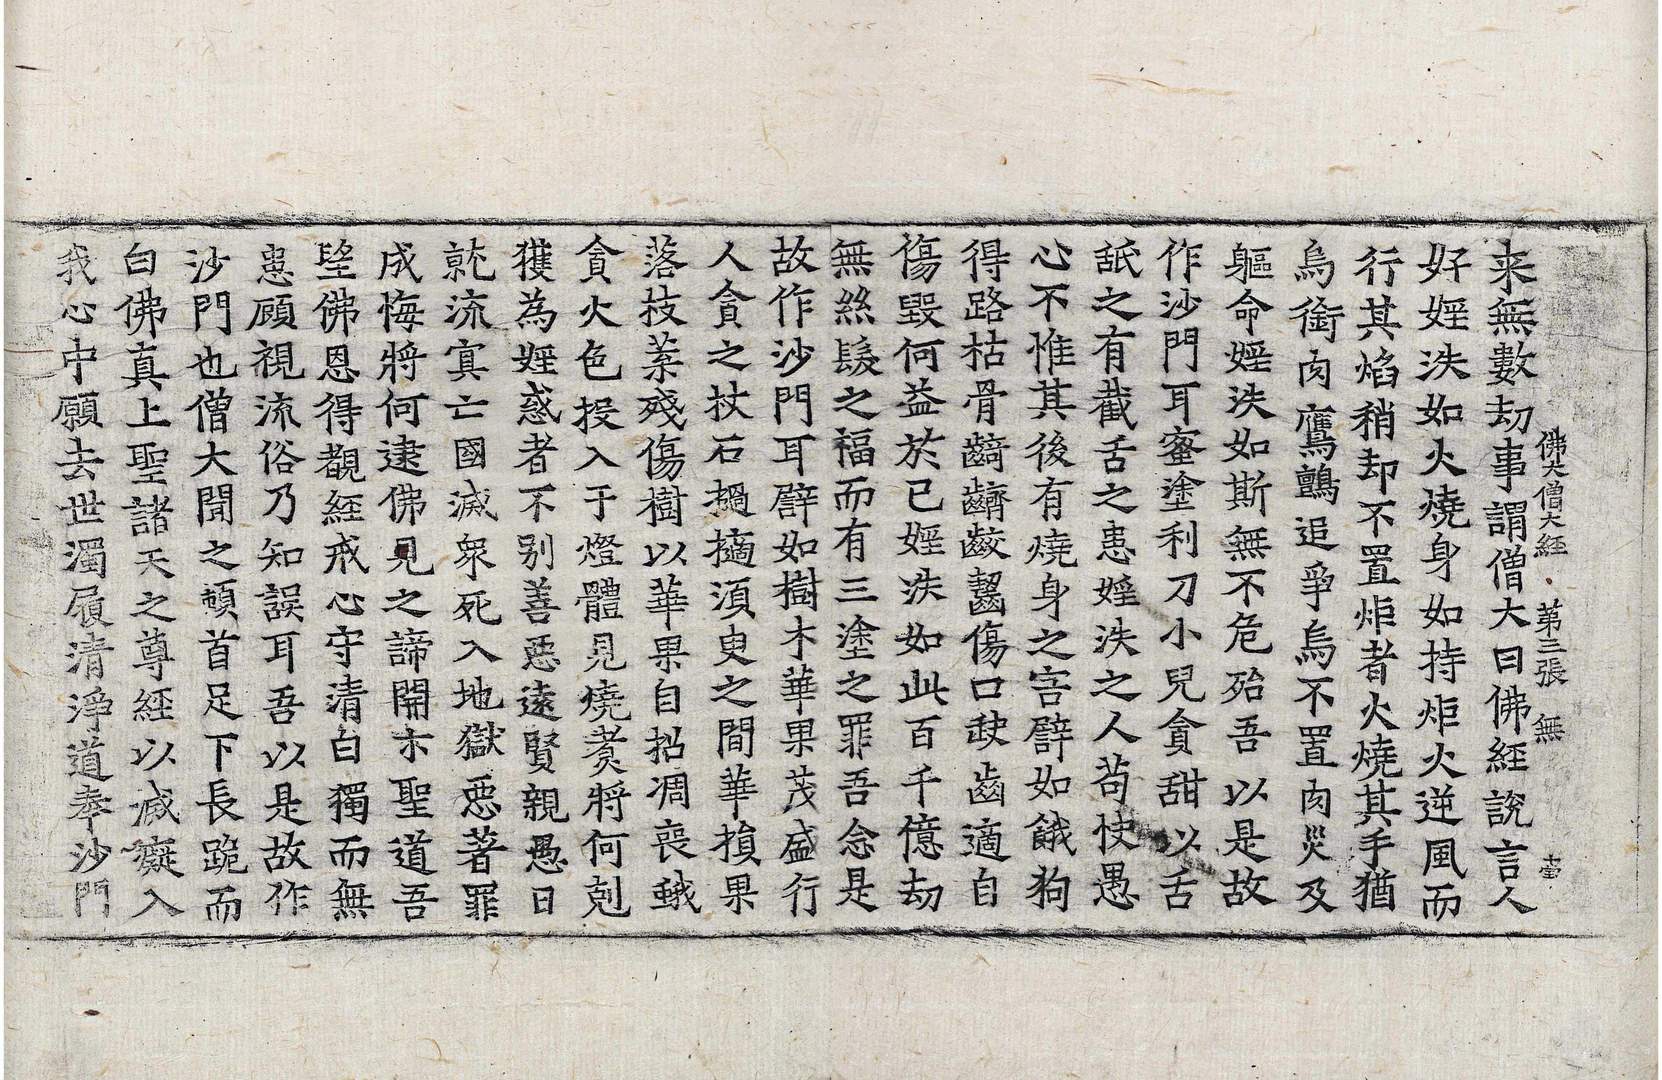 佛大僧大経 第三張 無
来無數劫事謂僧大曰佛經說言人
好婬泆如火燒身如持炬火逆風而
行其焰稍却不置炬者火燒其手猶
烏銜肉鷹鸇追爭烏不置肉災及
軀命婬泆如斯無不危殆吾以是故
作沙門耳蜜塗利刀小兒貪甜以舌
舐之有截舌之患婬泆之人苟快愚
心不惟其後有燒身之害譬如餓狗
得路枯骨齮齵齩齧傷口缺齒適自
傷毀何益於已婬泆如此百千億劫
無絲髮之福而有三塗之罪吾念是
故作沙門耳譬如樹木華果茂盛行
人貪之杖石撾擿湏臾之間華損果
落枝葉殘傷樹以華果自招凋喪蛾
貪火色投入于燈體見燒煑將何剋
獲為婬惑者不別善惡遠賢親愚日
就流㝠亡國滅眾死入地獄惡著罪
成悔將何逮佛見之諦開朩聖道吾
望佛恩得覩經戒心守清白獨而無
患顧視流俗乃知誤耳吾以是故作
沙門也僧大聞之頓首足下長跪而
白佛真上聖諸天之尊經以滅癡入
我心中願去世濁履清淨道奉沙門